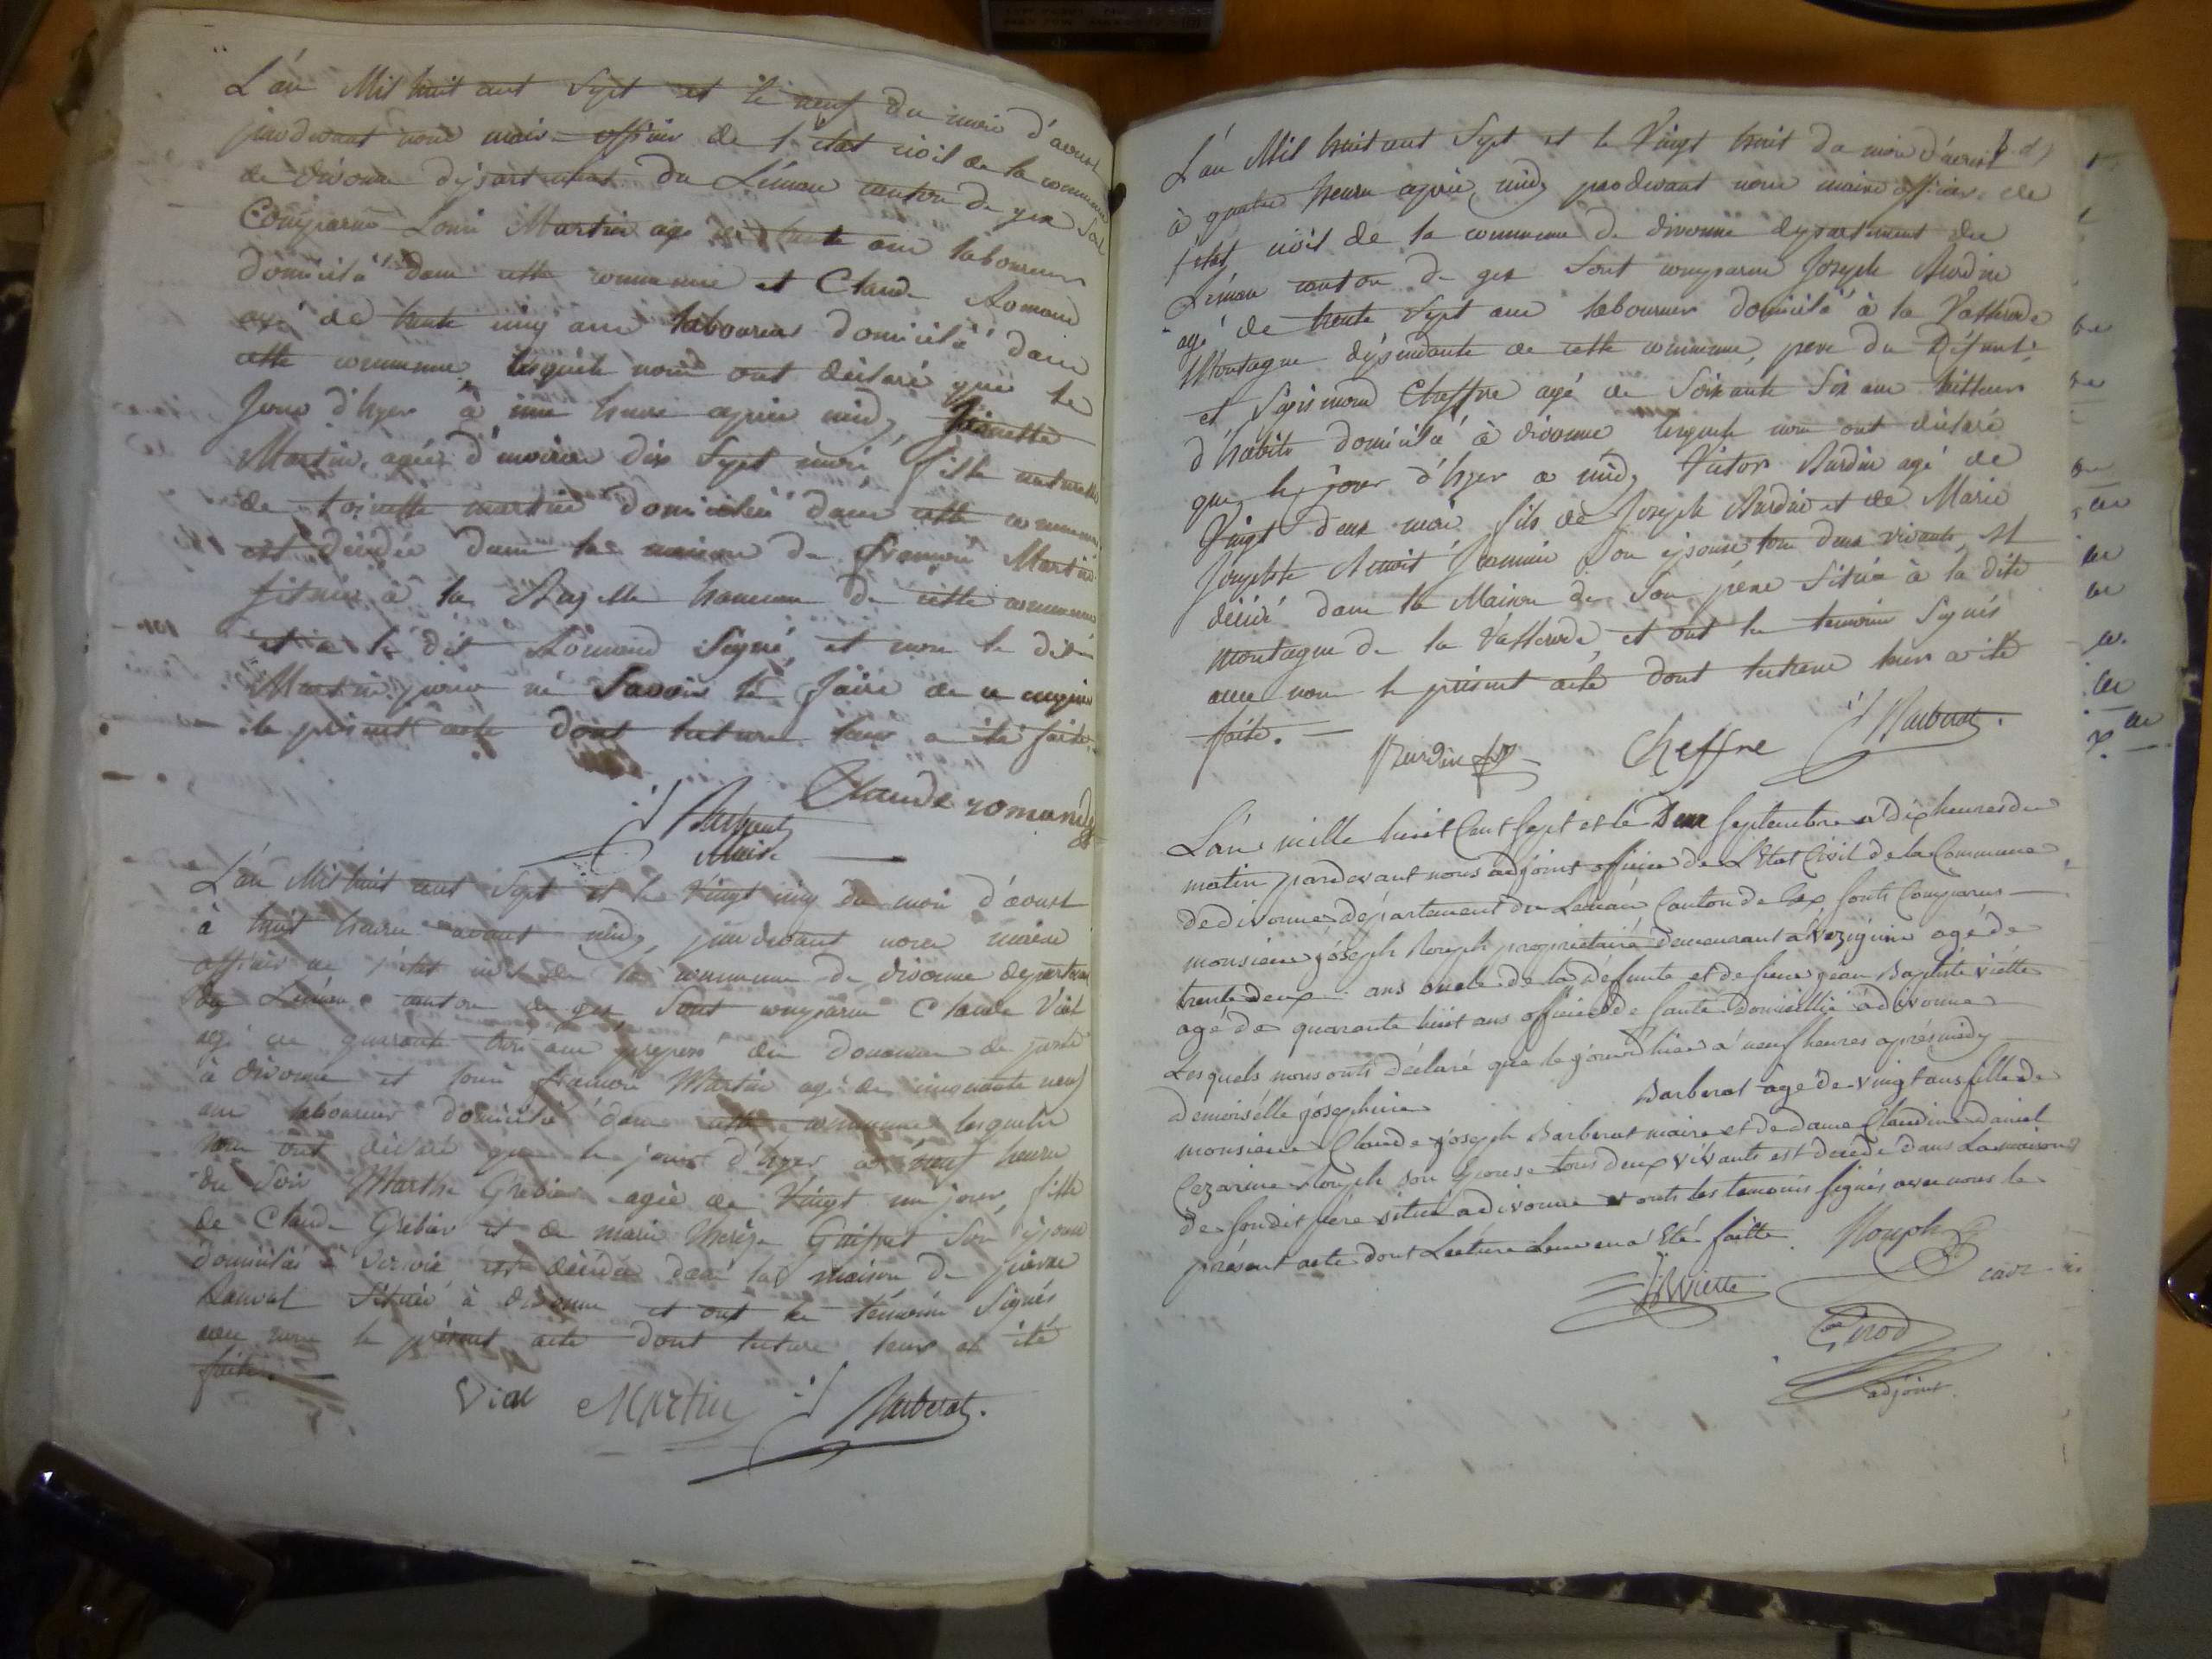 L'an Mil huit cent Sept et le neuf du mois d'aoust
pardevant nous maire officier de l'état civil de la commune
de divonne département du Léman canton de gex Sont
Comparus Louis Martin agé de trente ans laboureur
domicilié dans cette commune et Claude Romand
agé de trente cinq ans laboureur domicilié dans
cette commune lesquels nous ont déclaré que le
Jour d'hyer à une heure après midy,
Martin, agée d'environ dix Sept mois, fille naturelle
de toinette martin domiciliée dans cette commune
est décédée dans la maison de francois Martin
située à la hameau de cette commune
et a le dit Romand Signé, et non le dit
Martin pour ne Savoir le faire de ce enquis
le présent acte dont lecture leur a été faite.
Claude romand
Barberat
Maire
L'an Mil huit cent Sept et le Vingt cinq du mois d'aoust
à huit heures avant midy, pardevant nous maire
officier de l'état civil de la commune de divonne département
du Léman canton de gex Sont comparus Claude Vial
agé de quarante trois ans préposé des Douannes de poste
à divonne et Louis francois Martin agé de cinquante neuf
ans laboureur domicilié dans cette commune lesquels
nous ont déclaré que le jour d'hyer à neuf heures
du Soir Marthe Grebier agée de Vingt un jours, fille
de Claude Grebier et de marie Son épouse
domiciliés à est décédée dans la maison de pierre
Située à divonne et ont les témoins Signés
avec nous le présent acte dont lecture leur a été
faite. —
Vial Martin Barberat.
L'an Mil huit cent Sept et le Vingt huit du mois d'aoust
à quatre heures après midy pardevant nous maire officier de
l'état civil de la commune de divonne département du
Léman canton de gex Sont comparus Joseph Burdin
agé de trente Sept ans laboureur domicilié à la Vasserode
Montagne dépendante de cette commune, pere du Défunt
et Sigismond Cheffre agé de Soixante Six ans tailleur
d'habits domicilié à divonne lesquels nous ont déclaré
que le jour d'hyer a midy Victor Burdin agé de
Vingt deux mois fils de Joseph Burdin et de Marie
Josephte Benoit Jeannin Son épouse tous deux vivants est
décédé dans la Maison de Son père Située à la dite
montagne de la Vasserode, et ont les temoins Signés
avec nous le présent acte dont lecture leur a été
faite. —
Burdin Cheffre Barberat.
L'an mille huit Cent Sept et le Deux Septembre à Dix heures du
matin pardevant nous adjoint officier de L'Etat Civil de la Commune
de divonne département du Leman Canton de Gex sonts Comparus —
monsieur joseph Rouph propriétaire demeurant a Vezignin agé de
trente deux ans oncle de la défunte et de sieur jean Baptiste viette
agé de quarante huit ans officier de santé domicillié à divonne
Lesquels nous onts déclaré que le jour d'hier a neuf heures après midy
demoiselle josephine Barberat agé de vingt ans fille de
monsieur Claude joseph Barberat maire et de dame Claudine daniel
Cezarine Rouph son Epouse tous deux vivants est décédé dans La maison
de son dit pere située a divonne et onts les temoins signés avec nous le
présent acte dont Lecture Leur en a Eté faitte. Rouph
JBViette
Girod
adjoint.